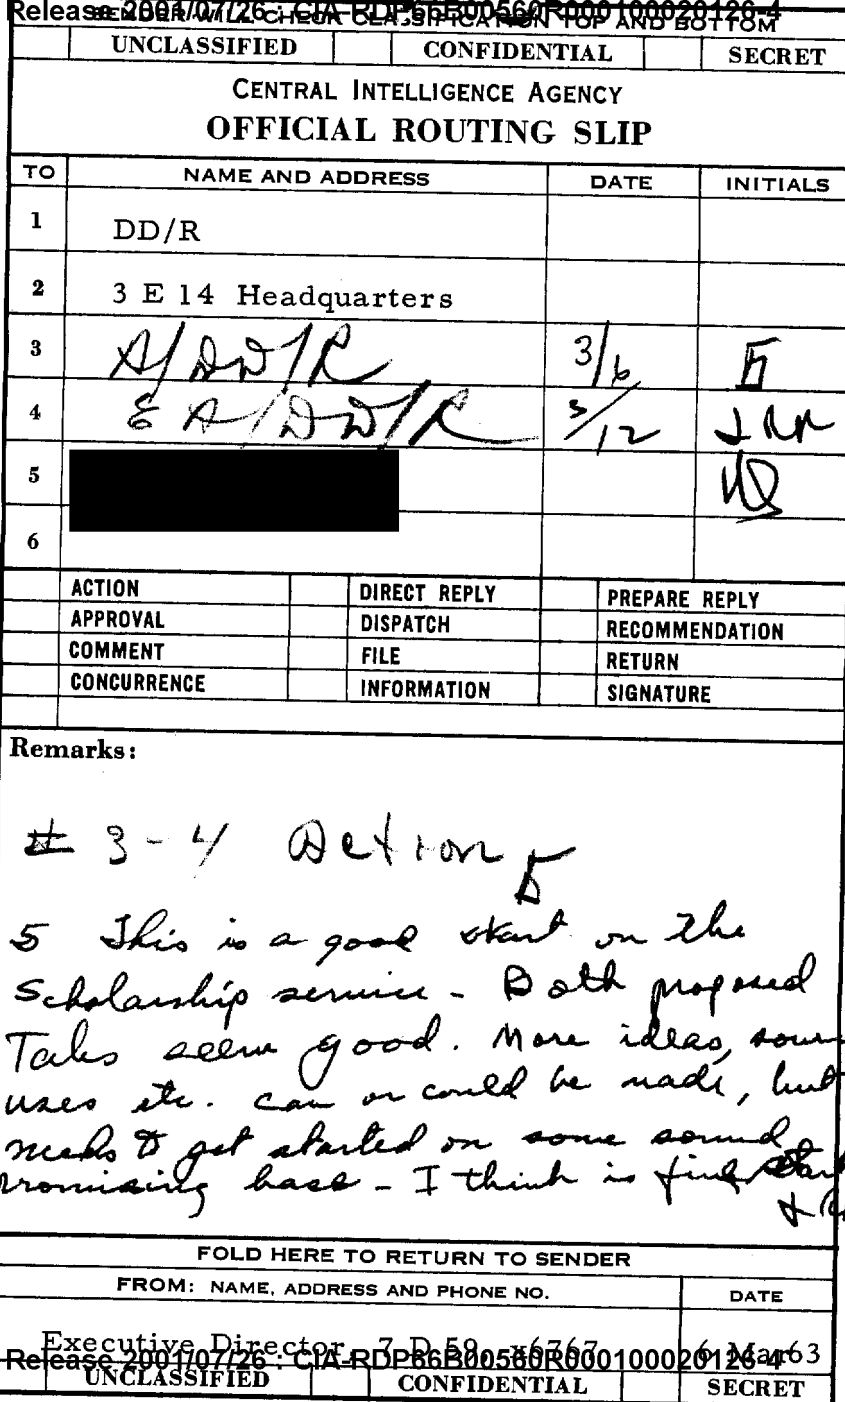 Release 2001/07/26 : CIA-RDP66B00560R000100020126-4
SENDER WILL CHECK CLASSIFICATION TOP AND BOTTOM
UNCLASSIFIED CONFIDENTIAL SECRET
CENTRAL INTELLIGENCE AGENCY
OFFICIAL ROUTING SLIP
TO NAME AND ADDRESS DATE INITIALS
1 DD/R
2 3 E 14 Headquarters
3 A/DD/R 3/6
4 EA/DD/R 3/12
5
6
ACTION DIRECT REPLY PREPARE REPLY
APPROVAL DISPATCH RECOMMENDATION
COMMENT FILE RETURN
CONCURRENCE INFORMATION SIGNATURE
Remarks:
# 3-4 Action
5 This is a good start on the
Scholarship service - Both proposed
Tabs seem good. More ideas,
uses etc. can or could be made, but
needs to get started on some sound
promising base - I think is fine
FOLD HERE TO RETURN TO SENDER
FROM: NAME, ADDRESS AND PHONE NO. DATE
Executive Director, 7 D 59, x6767 6 Mar 63
Release 2001/07/26 : CIA-RDP66B00560R000100020126-4
UNCLASSIFIED CONFIDENTIAL SECRET